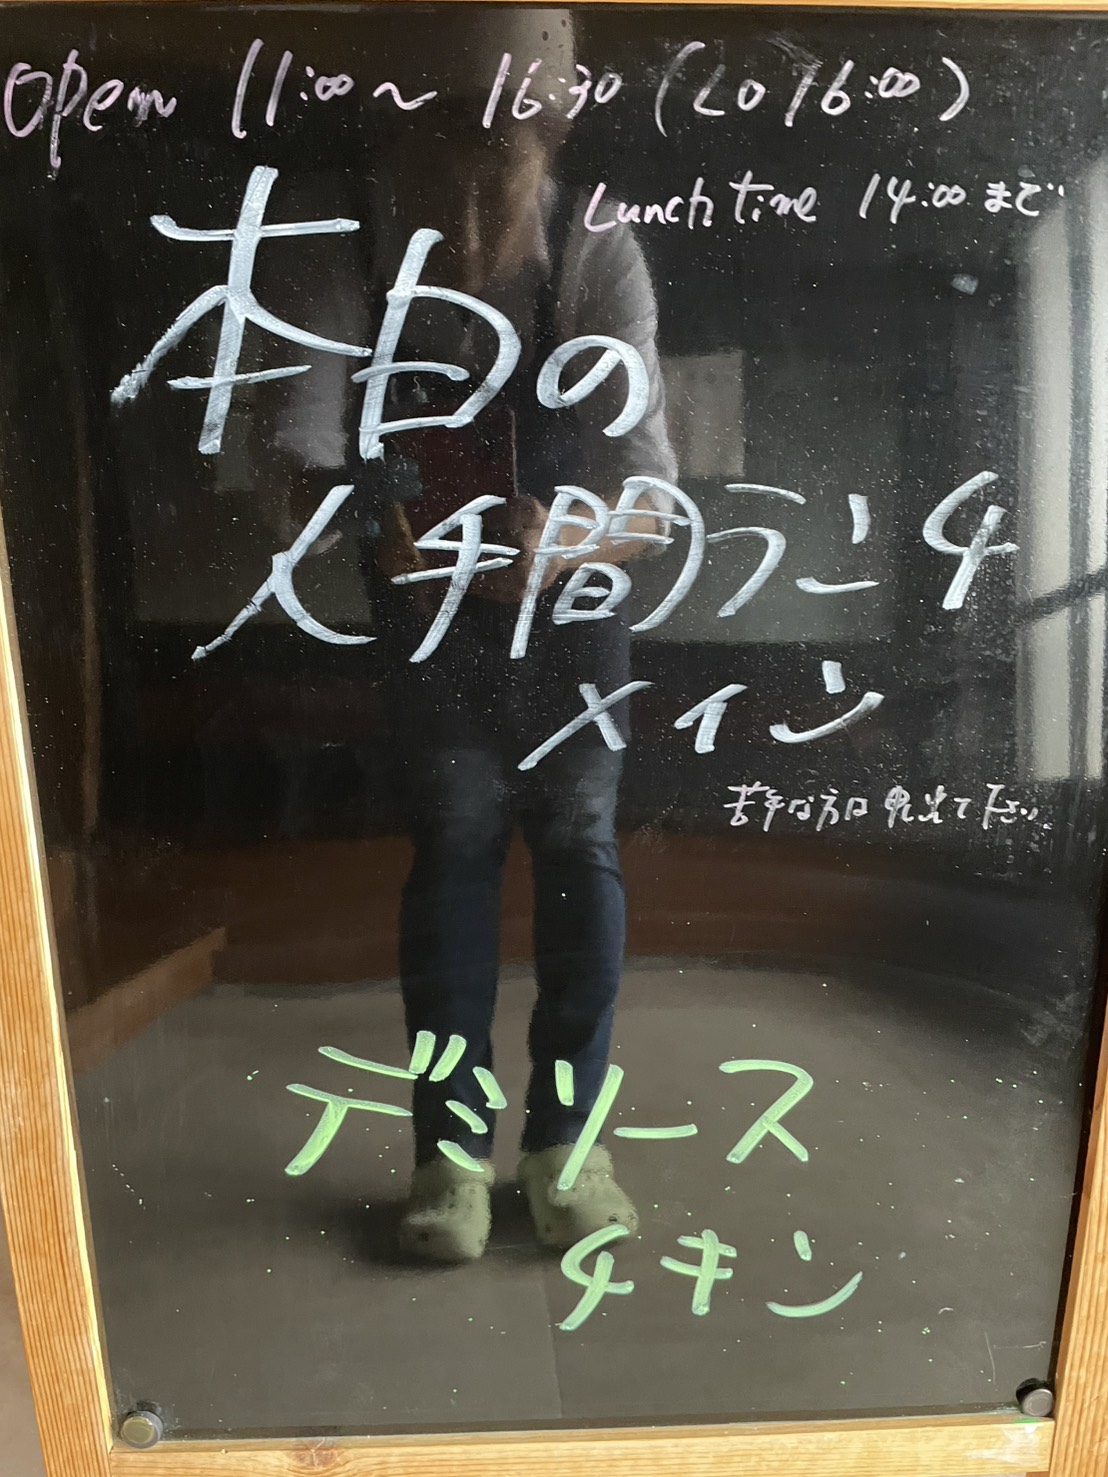 Open 11:00～16:30 (LO 16:00)
Lunch time 14:00まで
本日の
人手間ランチ
メイン
苦手な方は申出て下さい。
デミソース
チキン